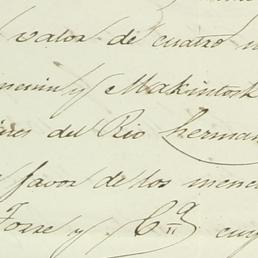 valor de cuatro
y Makintosh
del Rio herman
favor de los menci
Torre y Cª cuy